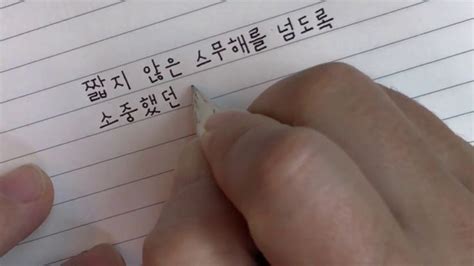 짧지 않은 스무해를 넘도록
소중했던